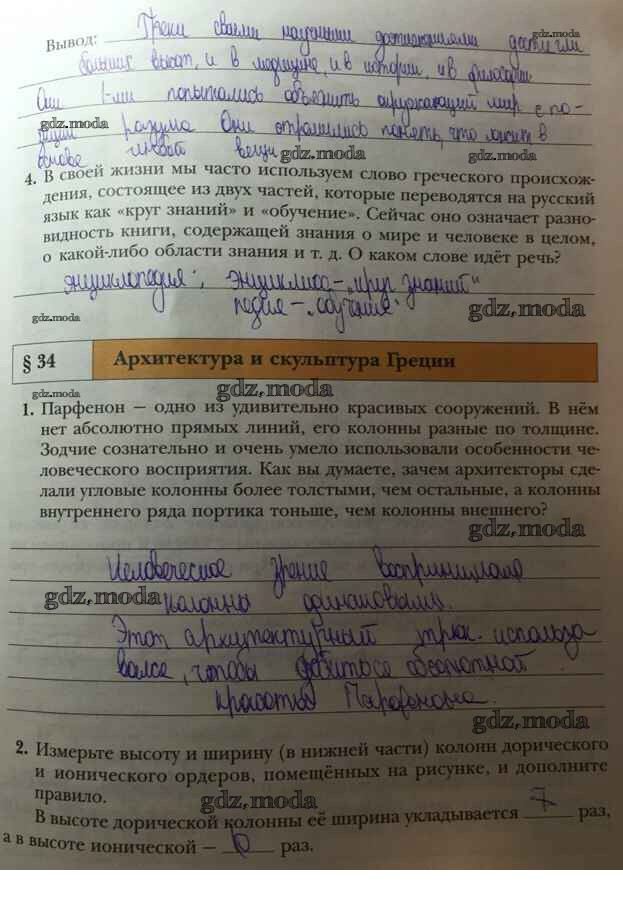 Вывод: Греки своими научными достижениями достигли
больших высот, и в медицине, и в истории, и в философии
Они 1-ми попытались объяснить окружающий мир с по-
зиции разума Они стремились понять, что лежит в
gdz.moda
основе любой вещи
gdz.moda
4. В своей жизни мы часто используем слово греческого происхож-
дения, состоящее из двух частей, которые переводятся на русский
язык как «круг знаний» и «обучение». Сейчас оно означает разно-
видность книги, содержащей знания о мире и человеке в целом,
о какой-либо области знания и т. д. О каком слове идёт речь?
энциклопедия; энциклиос-„круг знаний"
педия-„обучение"
gdz.moda
gdz.moda
§ 34 Архитектура и скульптура Греции
gdz.moda
gdz.moda
1. Парфенон — одно из удивительно красивых сооружений. В нём
нет абсолютно прямых линий, его колонны разные по толщине.
Зодчие сознательно и очень умело использовали особенности че-
ловеческого восприятия. Как вы думаете, зачем архитекторы сде-
лали угловые колонны более толстыми, чем остальные, а колонны
внутреннего ряда портика тоньше, чем колонны внешнего?
gdz.moda
Человеческое зрение воспринимало
gdz.moda
колонны одинаковыми.
Этот архитектурный трюк использо
вался, чтобы добиться абсолютной
красоты Парфенона.
gdz.moda
2. Измерьте высоту и ширину (в нижней части) колонн дорического
и ионического ордеров, помещённых на рисунке, и дополните
правило.
gdz.moda
В высоте дорической колонны её ширина укладывается 7 раз,
а в высоте ионической — 6 раз.